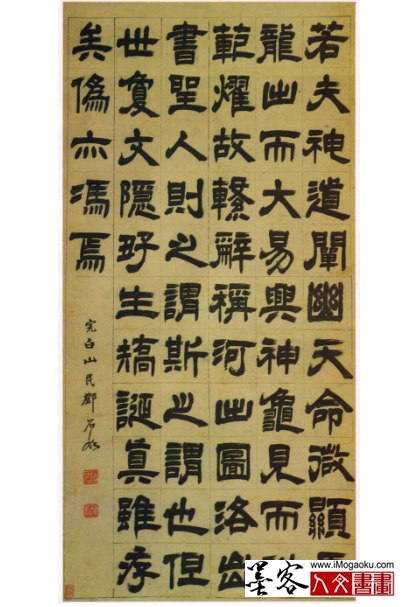 若夫神道闡幽天命微顯馬
龍出而大易興神龜見而
範耀故繫辭稱河出圖洛出
書聖人則之謂斯之謂也但
世夐文隱好生矯誕真雖存
矣偽亦馮焉
完白山民鄧石如
www.iMogaoku.com
墨客
人文書畫